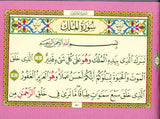 سُورَةُ الْمُلْكِ
بِسْمِ اللَّهِ الرَّحْمَٰنِ الرَّحِيمِ
تَبَٰرَكَ الَّذِي بِيَدِهِ الْمُلْكُ وَهُوَ عَلَىٰ كُلِّ شَيْءٍ قَدِيرٌ الَّذِي خَلَقَ
الْمَوْتَ وَالْحَيَوٰةَ لِيَبْلُوَكُمْ أَيُّكُمْ أَحْسَنُ عَمَلًا وَهُوَ الْعَزِيزُ الْغَفُورُ
الَّذِي خَلَقَ سَبْعَ سَمَٰوَٰتٍ طِبَاقًا مَا تَرَىٰ فِي خَلْقِ الرَّحْمَٰنِ مِنْ